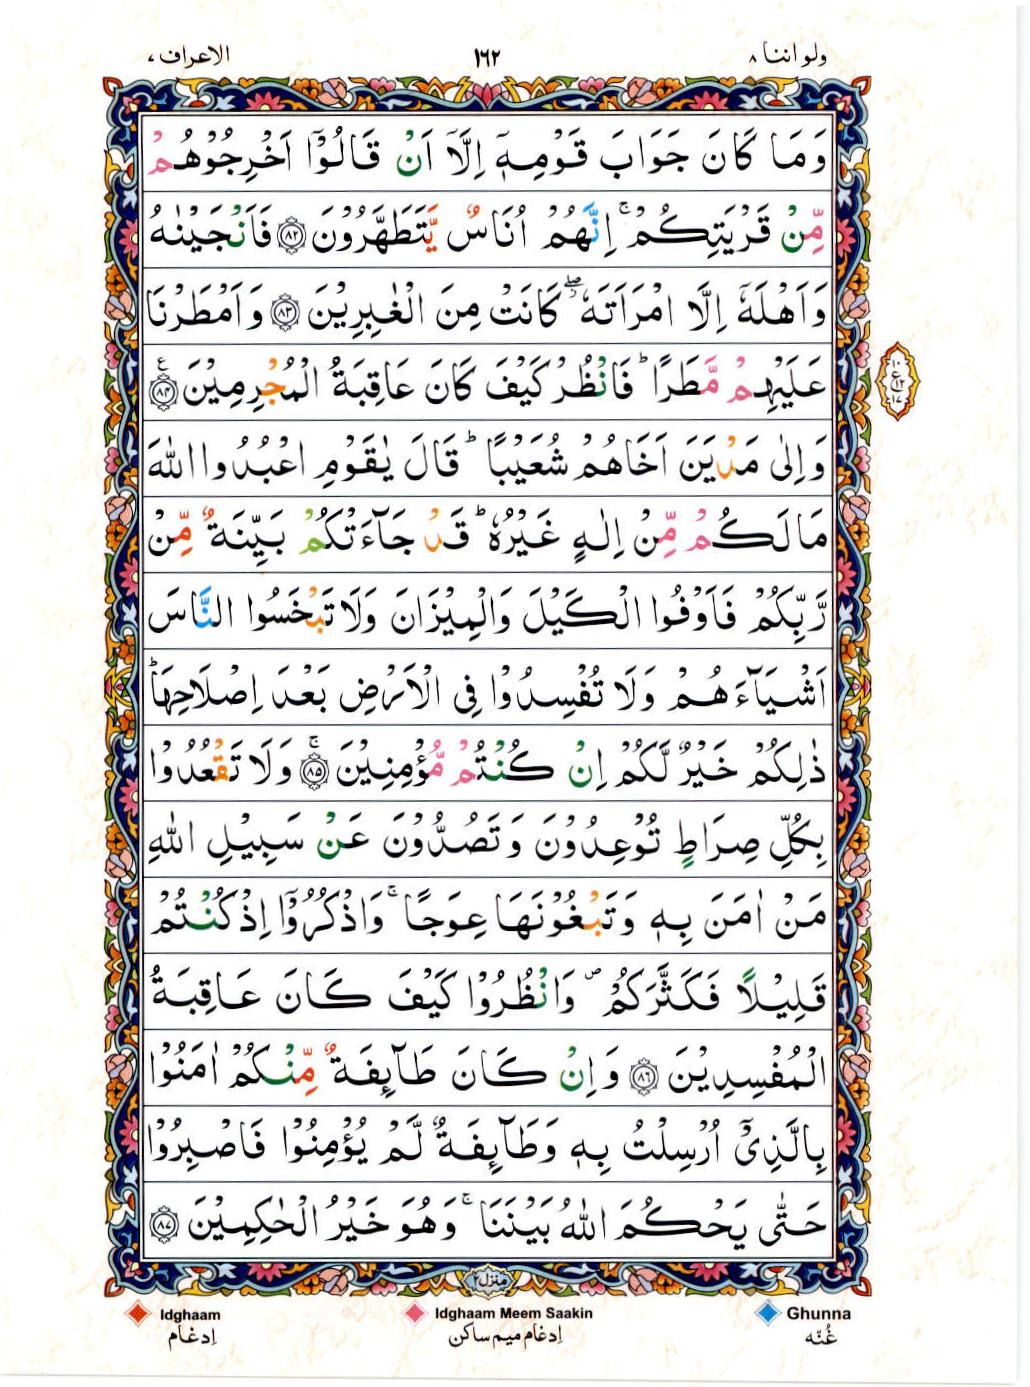 ولو اننا ۸
١٦٢
الاعراف ۷
وَمَا كَانَ جَوَابَ قَوْمِهٖۤ اِلَّاۤ اَنْ قَالُوْۤا اَخْرِجُوْهُمْ
مِّنْ قَرْيَتِكُمْ ۚ اِنَّهُمْ اُنَاسٌ يَّتَطَهَّرُوْنَ ﴿۸۲﴾ فَاَنْجَيْنٰهُ
وَاَهْلَهٗۤ اِلَّا امْرَاَتَهٗ ۖ كَانَتْ مِنَ الْغٰبِرِيْنَ ﴿۸۳﴾ وَاَمْطَرْنَا
عَلَيْهِمْ مَّطَرًا ؕ فَانْظُرْ كَيْفَ كَانَ عَاقِبَةُ الْمُجْرِمِيْنَ ﴿۸۴﴾ ع
١٠
ع
١٢
١٧
وَاِلٰى مَدْيَنَ اَخَاهُمْ شُعَيْبًا ؕ قَالَ يٰقَوْمِ اعْبُدُوا اللّٰهَ
مَا لَكُمْ مِّنْ اِلٰهٍ غَيْرُهٗ ؕ قَدْ جَآءَتْكُمْ بَيِّنَةٌ مِّنْ
رَّبِّكُمْ فَاَوْفُوا الْكَيْلَ وَالْمِيْزَانَ وَلَا تَبْخَسُوا النَّاسَ
اَشْيَآءَهُمْ وَلَا تُفْسِدُوْا فِى الْاَرْضِ بَعْدَ اِصْلَاحِهَا ؕ
ذٰلِكُمْ خَيْرٌ لَّكُمْ اِنْ كُنْتُمْ مُّؤْمِنِيْنَ ۚ ﴿۸۵﴾ وَلَا تَقْعُدُوْا
بِكُلِّ صِرَاطٍ تُوْعِدُوْنَ وَتَصُدُّوْنَ عَنْ سَبِيْلِ اللّٰهِ
مَنْ اٰمَنَ بِهٖ وَتَبْغُوْنَهَا عِوَجًا ۚ وَاذْكُرُوْۤا اِذْ كُنْتُمْ
قَلِيْلًا فَكَثَّرَكُمْ ۪ وَانْظُرُوْا كَيْفَ كَانَ عَاقِبَةُ
الْمُفْسِدِيْنَ ﴿۸۶﴾ وَاِنْ كَانَ طَآئِفَةٌ مِّنْكُمْ اٰمَنُوْا
بِالَّذِىْۤ اُرْسِلْتُ بِهٖ وَطَآئِفَةٌ لَّمْ يُؤْمِنُوْا فَاصْبِرُوْا
حَتّٰى يَحْكُمَ اللّٰهُ بَيْنَنَا ۚ وَهُوَ خَيْرُ الْحٰكِمِيْنَ ﴿۸۷﴾
منزل ٢
Idghaam
Idghaam Meem Saakin
Ghunna
اِدغام
اِدغام میم ساکن
غُنّه